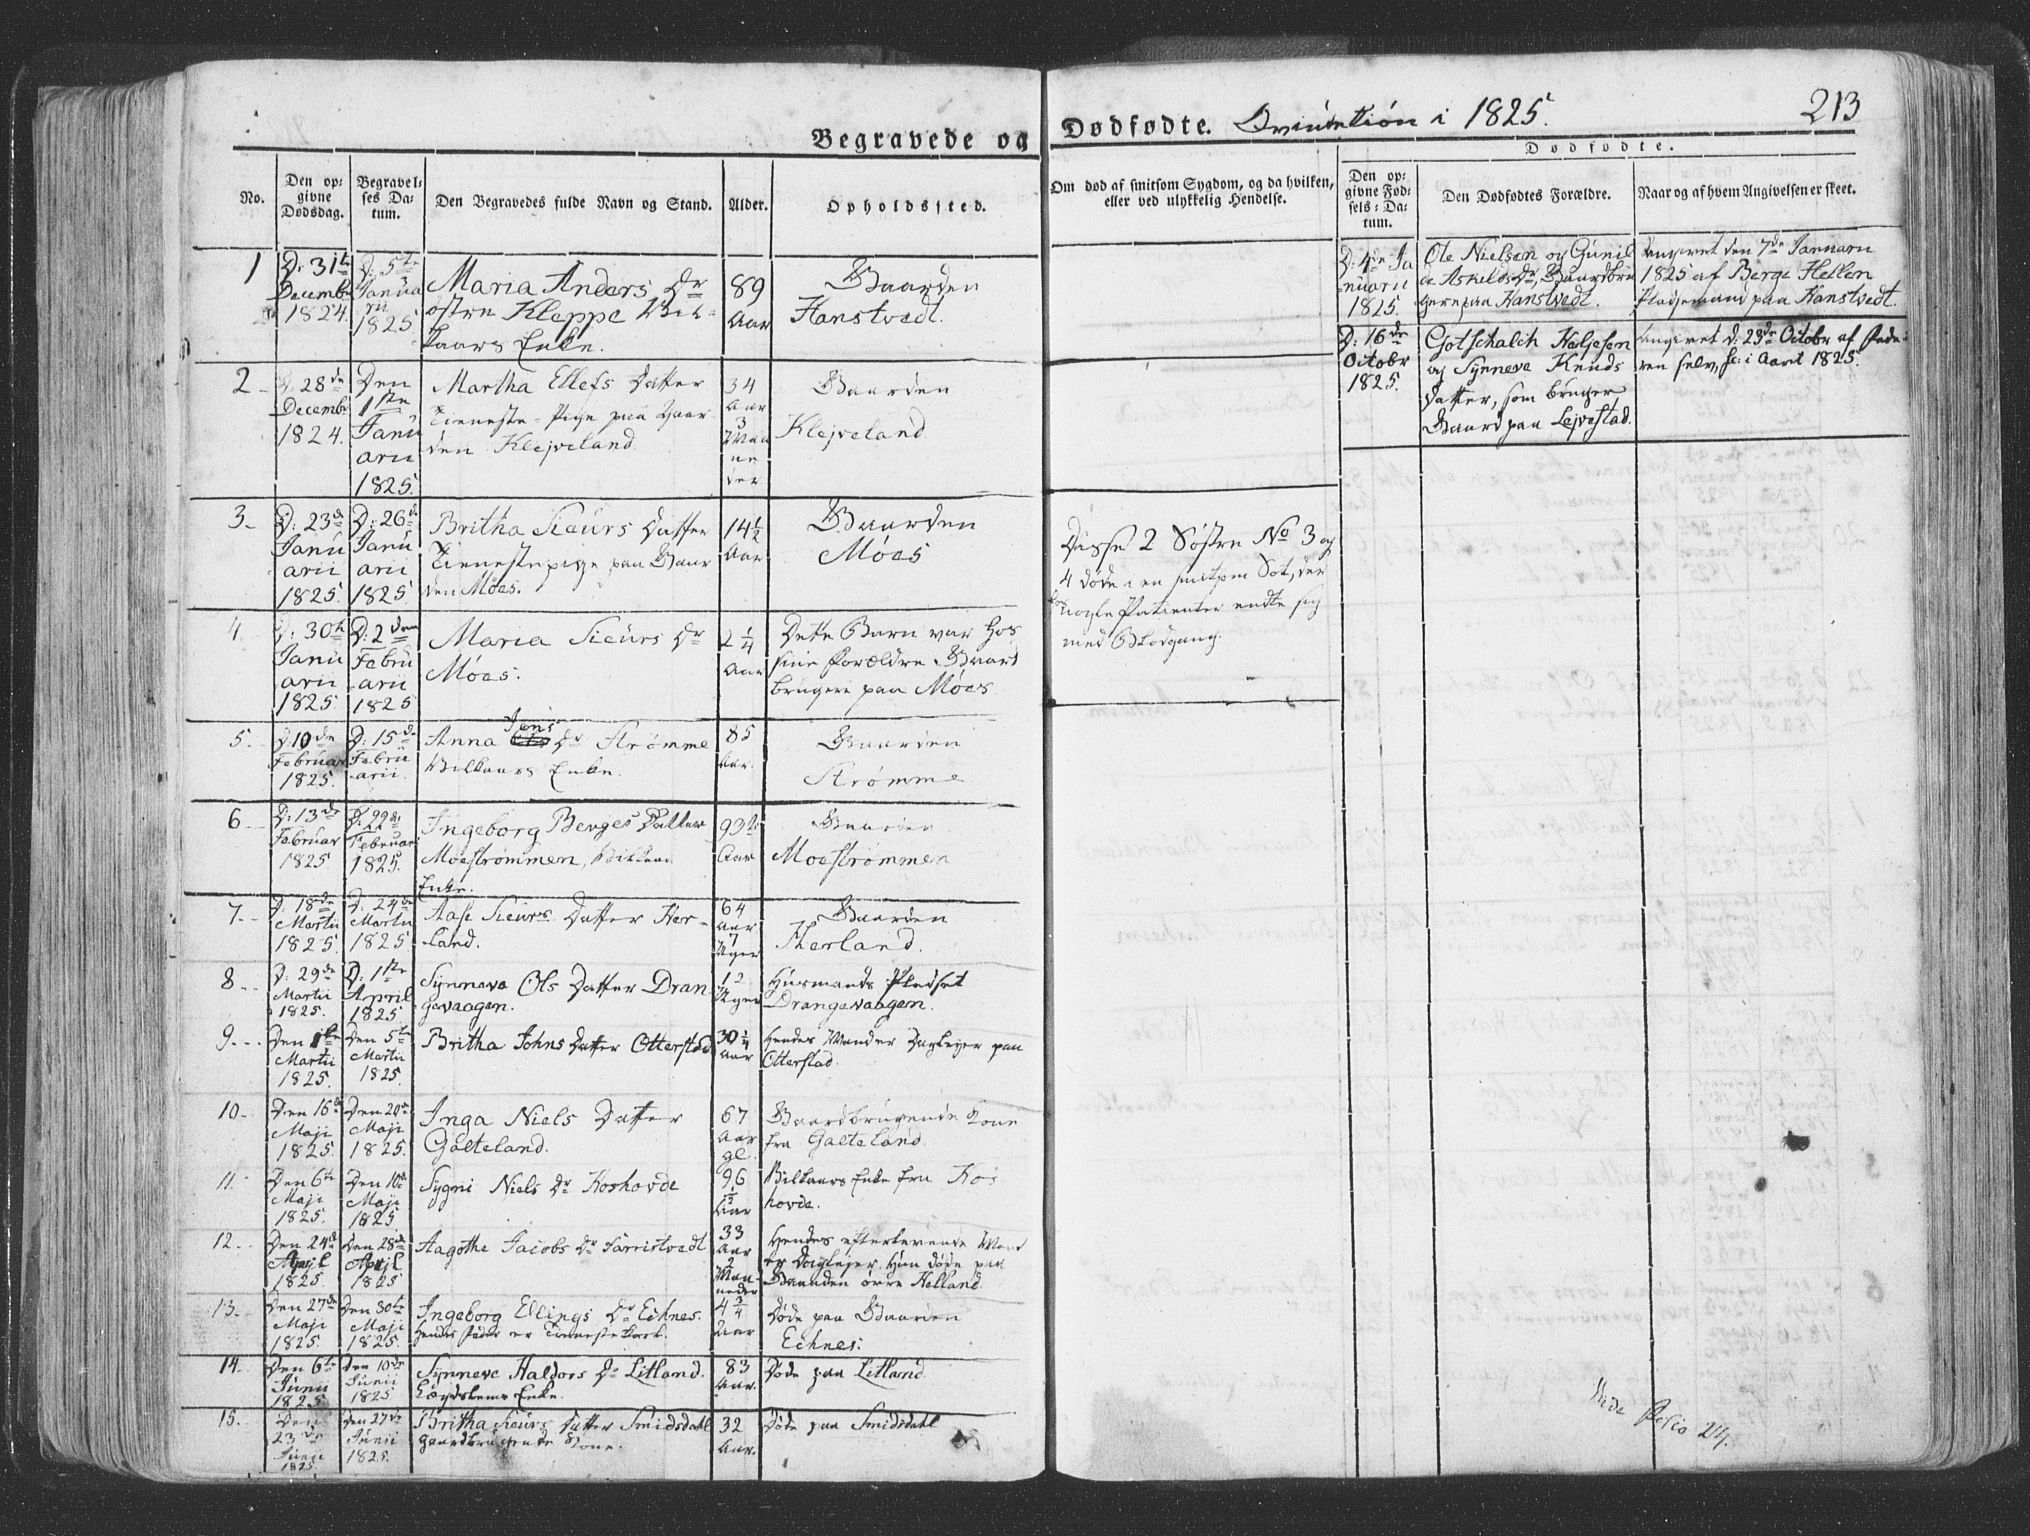 Begravede og Dødfødte. Qvindekiøn i 1825. 213
No.
Den op=
givne
Dødsdag.
Begravel=
ses Da=
tum.
Den Begravedes fulde Navn og Stand.
Alder.
Opholdssted.
Om død af smitsom Sygdom, og da hvilken,
eller ved ulykkelig Hendelse.
Dødfødte.
Den op=
givne Fød=
sels=Da=
tum.
Den Dødfødtes Forældre.
Naar og af hvem Angivelsen er skeet.
1
D: 31te
Decembr
1824.
D: 5te
Janua
rii
1825
Maria Anders Dr
østre Kleppe Vil-
kaars Enke.
89
Aar
Gaarden
Hanstvedt.
2
D: 28de
Decembr
1824.
Den
1ste
Janu
arii
1825.
Martha Ellefs Datter
Tieneste-Pige paa Gaar
den Klejveland
34
Aar
3
Maa
ne
der
Gaarden
Klejveland
3
D: 23de
Janu
arii
1825.
D: 26de
Janu
arii
1825.
Britha Sieurs Datter
Tienestepige paa Gaar
den Møes.
14 1/2
Aar
Gaarden
Møes
Disse 2 Søstre No 3 og
4 døde i en smitsom Sot, der
for nogle Patienter endte sig
med Blodgang.
4
D: 30te
Janu
arii
1825
D: 2den
Febru
arii
1825
Maria Sieurs Dr
Møes.
2 1/4
Aar
Dette Barn var hos
sine Forældre Gaard
brugere paa Møes
5
D: 10de
Februar
1825.
D: 15de
Febru
arii.
Anna Jens Dr Strømme
Vilkaars Enke.
85
Aar.
Gaarden
Strømme
6
D: 13de
Februar
1825
D: 22de
Februari
1825.
Ingeborg Berges Datter
Moestrømmen, Vilkaars
Enke.
93 1/2
Aar
Gaarden
Moestrømmen
7
D: 18de
Martii
1825.
D: 24de
Martii
1825
Aase Sieurs Datter Her-
land.
64
Aar
7
Uger
Gaarden
Herland.
8
D: 29de
Martii
1825.
D: 1ste
April
1825
Synneva Ols Datter Dran
gevaagen.
12
Uger
Husmands Pladset
Drangevaagen.
9
Den 1ste
Martii
1825.
Den 5te
Martii
1825.
Britha Johns Datter Otterstad
30 1/4
Aar
Hendes Mand er Daglejer paa
Otterstad.
10
Den 16de
Maji
1825.
Den 20de
Maji
1825.
Inga Niels Datter
Gaeteland.
67
Aar
gl.
Gaardbrugende Kone
fra Gaeteland.
11
Den 6te
Maji
1825.
Den 10de
Maji
1825
Sygni Niels Dr Koshovde
96
1/2
Aar
Vilkaars Enke fra Kos
hovde.
12
Den 24de
April
1825.
Den 28de
April
1825
Aagothe Jacobs Dr Færristvedt
33
Aar
2
Maa-
neder
Hendes efterlevende Mand
er Daglejer. Hun døde paa
Gaarden øvre Helland
13
Den 27de
Maji
1825.
Den 30te
Maji
1825.
Ingeborg Ellings Dr Echnes.
Hendes Fader er Tienestekarl.
4 3/4
Aar
Døde paa Gaarden
Echnes:
14
Den 6te
Junii
1825
Den 10de
Junii
1825
Synneve Haldors Dr Litland.
Lægdslems Enke.
83
Aar.
Døde paa Litland
15.
Den
23de
Junii
1825.
Den 27de
Junii
1825.
Britha Sieurs Datter Smidsdahl
gaardbrugende Kone.
32
Aar.
Døde paa Smidsdahl
D: 4de Ja
nuarii
1825.
Ole Nielsen og Gunil
de Askilds Dr, Gaardbru
gere paa Hanstvedt.
Angivet den 7de Januarii
1825 af Berge Hellen
Pladsemand paa Hanstvedt.
D: 16de
Octobr
1825.
Gotschalch Heljesen
og Synneve Knuds
Datter, som bruger
Gaard paa Lejvestad.
Angivet d: 23de Octobr af Fade-
ren selv, sc: i Aaret 1825.
Vide Folio 214.